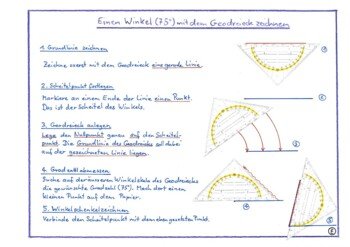 Einen Winkel (75°) mit dem Geodreieck zeichnen
1. Grundlinie zeichnen
Zeichne zuerst mit dem Geodreieck eine gerade Linie.
2. Scheitelpunkt festlegen
Markiere an einem Ende der Linie einen Punkt.
Das ist der Scheitel des Winkels.
3. Geodreieck anlegen
Lege den Nullpunkt genau auf den Scheitel-
punkt. Die Grundlinie des Geodreiecks soll dabei
auf der gezeichneten Linie liegen.
4. Gradzahl abmessen
Suche auf der äusseren Winkelskala des Geodreiecks
die gewünschte Gradzahl (75°). Mach dort einen
kleinen Punkt auf dem Papier.
5. Winkelschenkel zeichnen
Verbinde den Scheitelpunkt mit dem eben gesetzten Punkt.